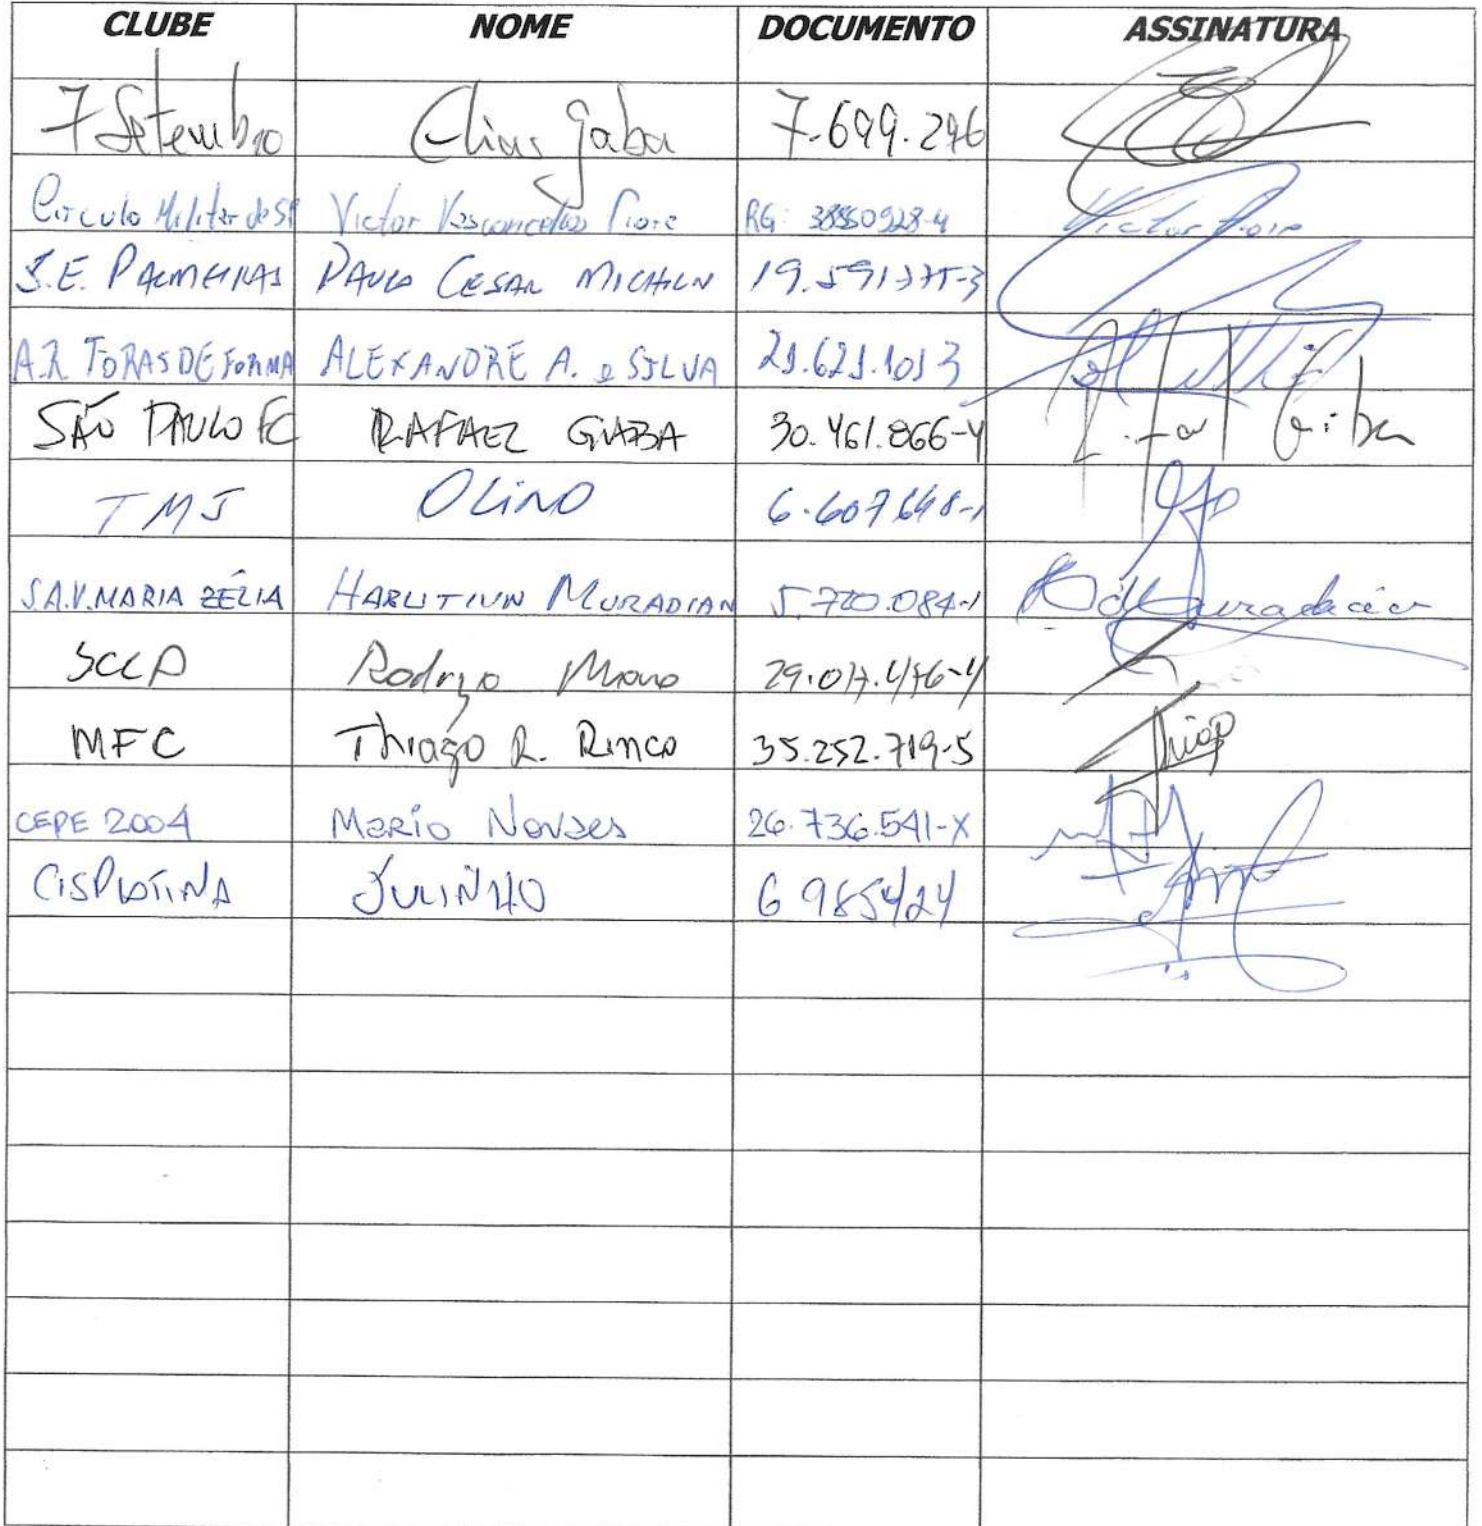 CLUBE NOME DOCUMENTO ASSINATURA
7 Setembro Elias Gaba 7.699.296
Circulo Militar de SP Victor Vasconcellos Fiore RG: 38850928-4 Victor Fiore
S.E. PALMEIRAS PAULO CESAR MICHELN 19.591375-3
A.R TORAS DE FORMA ALEXANDRE A. e SILVA 21.621.101 3
SÃO PAULO FC RAFAEL GIABA 30.461.866-4
TMJ OLINO 6.607648-1
S.A.V. MARIA ZÉLIA HARUTIUN MURADIAN 5.720.084-1 Muradian
SCCP Rodrigo 29.017.476-4
MFC Thiago R. Rinco 35.252.719-5 Thiago
CEPE 2004 Mario Novaes 26.736.541-X
CISPLATINA JULINHO 6 985424